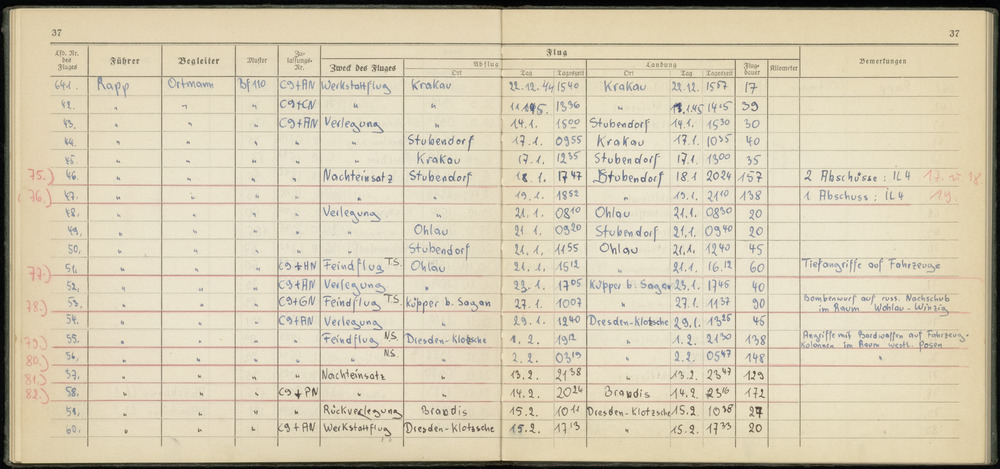 37 37
Lfd. Nr. des Fluges Führer Begleiter Muster Zulassungs-Nr. Zweck des Fluges Flug Bemerkungen
Abflug Landung Flugdauer Kilometer
Ort Tag Tageszeit Ort Tag Tageszeit
641. Rapp Ortmann Bf 110 C9+AN Werkstattflug Krakau 22.12.44 1540 Krakau 22.12. 1557 17
42. " " " C9+CN " " 11.1.45. 1336 " 1.45 1415 39
43. " " " C9+AN Verlegung " 14.1. 1500 Stubendorf 14.1. 1530 30
44. " " " " " Stubendorf 17.1. 0955 Krakau 17.1. 1035 40
45. " " " " " Krakau 17.1. 1235 Stubendorf 17.1. 1300 35
75.) 46. " " " " Nachteinsatz Stubendorf 18.1. 1747 Stubendorf 18.1 2024 157 2 Abschüsse: IL4 17. u. 18.
76.) 47. " " " " " " 19.1. 1852 " 19.1. 2110 138 1 Abschuss: IL4 19.
48. " " " " Verlegung " 21.1. 0810 Ohlau 21.1. 0830 20
49. " " " " " Ohlau 21.1. 0920 Stubendorf 21.1. 0940 20
50. " " " " " Stubendorf 21.1. 1155 Ohlau 21.1. 1240 45
77.) 51. " " " C9+HN Feindflug T.S. Ohlau 21.1. 1512 " 21.1. 16.12 60 Tiefangriffe auf Fahrzeuge
52. " " " C9+AN Verlegung " 23.1. 1705 Küpper b. Sagan 23.1. 1745 40
78.) 53. " " " C9+GN Feindflug T.S. Küpper b. Sagan 27.1. 1007 " 27.1. 1137 90 Bombenwurf auf russ. Nachschub
im Raum Wohlau-Winzig
54. " " " C9+AN Verlegung " 29.1. 1240 Dresden-Klotzsche 29.1. 1325 45
79.) 55. " " " " Feindflug N.S. Dresden-Klotzsche 1.2. 1912 " 1.2. 2130 138 Angriffe mit Bordwaffen auf Fahrzeug-
kolonnen im Raum westl. Posen
80.) 56. " " " " " N.S. " 2.2. 0319 " 2.2. 0547 148 "
81.) 57. " " " " Nachteinsatz " 13.2. 2138 " 13.2. 2347 129
82.) 58. " " " C9+PN " " 14.2. 2024 Brandis 14.2. 2316 172
59. " " " " Rückverlegung Brandis 15.2. 1011 Dresden-Klotzsche 15.2. 1038 27
60. " " " C9+AN Werkstattflug Dresden-Klotzsche 15.2. 1713 " 15.2. 1733 20